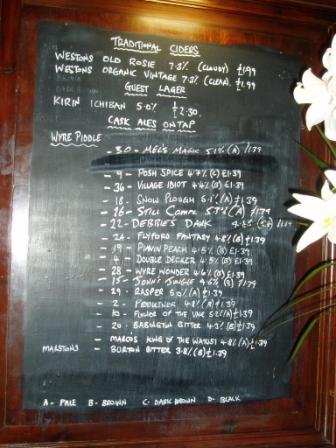 TRADITIONAL CIDERS
WESTONS OLD ROSIE 7.3% (CLOUDY) £1.99
WESTONS ORGANIC VINTAGE 7.3% (CLEAR. £1.99
GUEST LAGER
KIRIN ICHIBAN 5.0% £2.30.
CASK ALES ON TAP
WYRE PIDDLE
- 30 - MEG'S MAGIC 5.1% (A) 1.79
- 9 - POSH SPICE 4.7% (C) £1.39
- 36 - VILLAGE IDIOT 4.4% (B) £1.39
- 18 - SNOW PLOUGH 5.1% (A) £1.79
- 16 - STILL
- 22 - DEBBIE'S DARK
FLYFORD FANTASY 4.8% (B) £1.39
- 19 - PEACH 4.5% (B) £1.39
DOUBLE DECKER 4.5% (B) £1.39
- 28 - WYRE WONDER 4.6% (B) £1.39
- 15 - JUNGLE 4.6%
- 29 - RASPER 5.0% (A) £1.39
- 2 - PIDDLETHER 4.8% (A) £1.39
- 10 - OF THE 5.2% (A) £1.39
- 20 - BABINGTON BITTER 4.3% (B) £1.39
- MARCOS KING OF THE WATUSI 4.8% (A) £1.39
MARSTONS - BURTON BITTER 3.8% (B) £1.39
A - PALE B - BROWN C - DARK BROWN D - BLACK